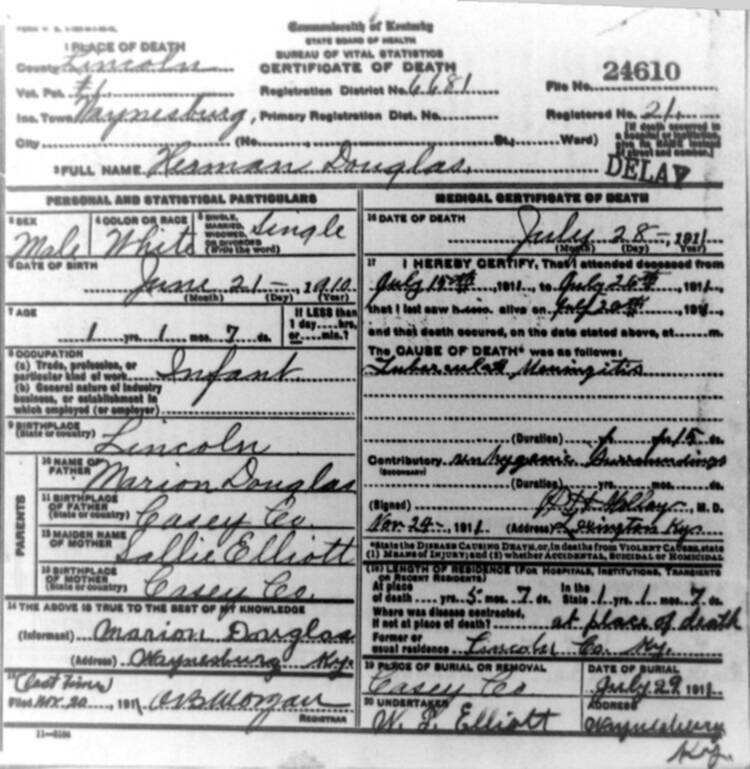 Commonwealth of Kentucky
STATE BOARD OF HEALTH
BUREAU OF VITAL STATISTICS
CERTIFICATE OF DEATH
1 PLACE OF DEATH
County Lincoln
Vot. Pct. #6 Registration District No. 6681 File No. 24610
Inc. Town Waynesburg, Primary Registration Dist. No. Registered No. 21.
City (No. St.; Ward) [If death occurred in a hospital or institution, give its NAME instead of street and number.]
2 FULL NAME Herman Douglas. DELAY
PERSONAL AND STATISTICAL PARTICULARS
3 SEX Male
4 COLOR OR RACE White
5 SINGLE, MARRIED, WIDOWED, OR DIVORCED (Write the word) Single
6 DATE OF BIRTH June 21- 1910
(Month) (Day) (Year)
7 AGE 1 yrs. 1 mos. 7 ds. If LESS than 1 day....hrs. or....min.?
8 OCCUPATION
(a) Trade, profession, or particular kind of work Infant
(b) General nature of industry business, or establishment in which employed (or employer)
9 BIRTHPLACE (State or country) Lincoln
PARENTS
10 NAME OF FATHER Marion Douglas
11 BIRTHPLACE OF FATHER (State or country) Casey Co.
12 MAIDEN NAME OF MOTHER Sallie Elliott
13 BIRTHPLACE OF MOTHER (State or country) Casey Co.
14 THE ABOVE IS TRUE TO THE BEST OF MY KNOWLEDGE
(Informant) Marion Douglas
(Address) Waynesburg Ky.
15 Filed Nov. 20, 1911 Morgan
REGISTRAR
MEDICAL CERTIFICATE OF DEATH
16 DATE OF DEATH July 28- 1911
(Month) (Day) (Year)
17 I HEREBY CERTIFY, That I attended deceased from
July 15th, 1911, to July 26th, 1911,
that I last saw h alive on July 20th, 1911
and that death occurred, on the date stated above, at m.
The CAUSE OF DEATH* was as follows:
Tubercular Meningitis
(Duration) 15 ds.
Contributory unhygenic Surroundings
(SECONDARY)
(Duration) yrs. mos. ds.
(Signed) , M. D.
Nov. 24-, 1911 (Address) Lexington Ky.
*State the DISEASE CAUSING DEATH, or, in deaths from VIOLENT CAUSES, state (1) MEANS OF INJURY; and (2) whether ACCIDENTAL, SUICIDAL or HOMICIDAL
(18) LENGTH OF RESIDENCE (FOR HOSPITALS, INSTITUTIONS, TRANSIENTS OR RECENT RESIDENTS)
At place of death yrs. 5 mos. 7 ds. In the State 1 yrs. 1 mos. 7 ds.
Where was disease contracted, if not at place of death? at place of death
Former or usual residence Lincoln Co. Ky.
19 PLACE OF BURIAL OR REMOVAL Casey Co
DATE OF BURIAL July 29 1911
20 UNDERTAKER W. L. Elliott
ADDRESS Waynesburg Ky.